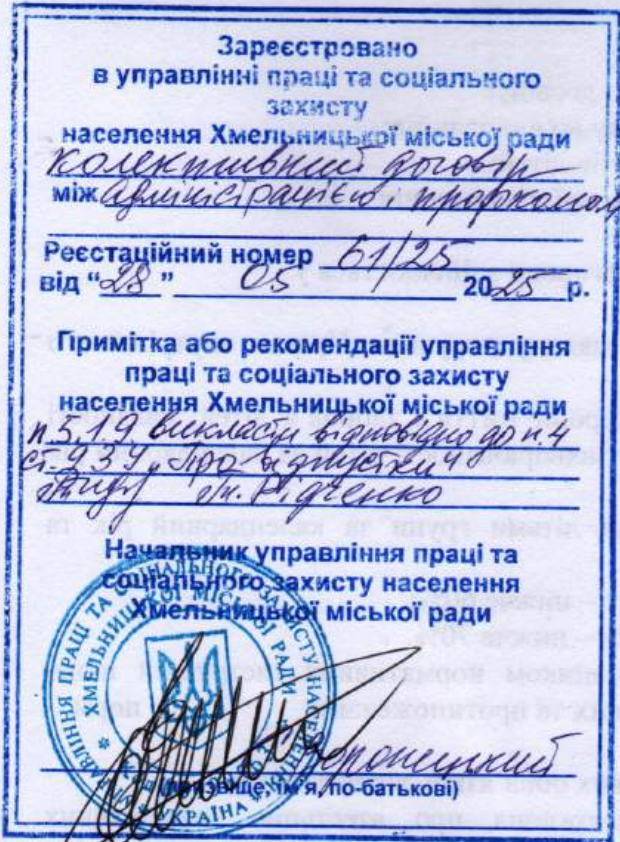 Зареєстровано
в управлінні праці та соціального
захисту
населення Хмельницької міської ради
колективний договір
між адміністрацією і профкомом
Реєстаційний номер 61/25
від "28" 05 2025 р.
Примітка або рекомендації управління
праці та соціального захисту
населення Хмельницької міської ради
п 3.19 викласти відповідно до п 4
ст. 9 ЗУ "Про відпустки"
Начальник управління праці та
соціального захисту населення
Хмельницької міської ради
(прізвище, ім'я, по-батькові)
УПРАВЛІННЯ ПРАЦІ ТА СОЦІАЛЬНОГО ЗАХИСТУ НАСЕЛЕННЯ
ХМЕЛЬНИЦЬКОЇ МІСЬКОЇ РАДИ
УКРАЇНА